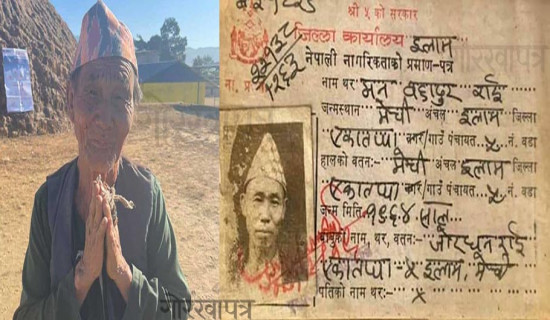 श्री ५ को सरकार
जिल्ला कार्यालय इलाम
नेपाली नागरिकताको प्रमाण-पत्र
ना. प्र. नाम थर मन बहादुर राई
जन्मस्थान मेची अंचल इलाम जिल्ला
एकतप्पा नगर/गाउँ पंचायत ५ नं. वडा
हालको वतन:- मेची अंचल इलाम जिल्ला
एकतप्पा नगर/गाउँ पंचायत ५ नं. वडा
जन्म मिति १९६४ साल
बाबुको नाम, थर, वतन:- जोरधन राई
एकतप्पा-५ इलाम, मेची
पतिको नाम थर:- ×
गोरखापत्र
गोरखापत्र